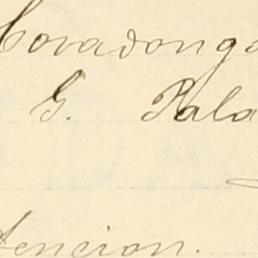 Covadonga
G. Pala
tencion.